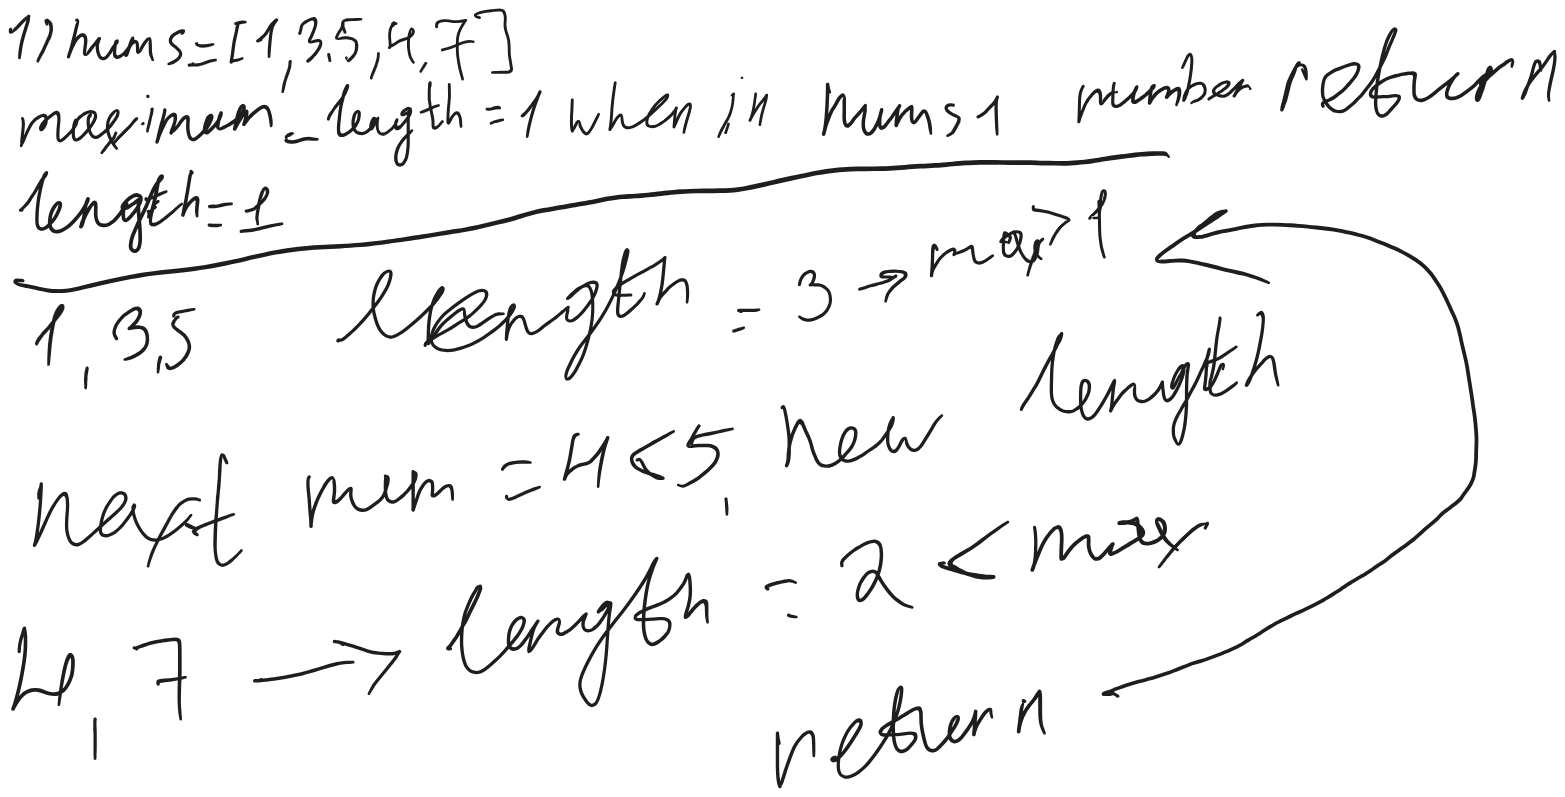 1) nums=[1,3,5,4,7]
maximum_length=1 when in nums 1 number return
length=1
1,3,5 length = 3 → max > 1
next num = 4<5, new length
4,7 → length = 2 < max
return